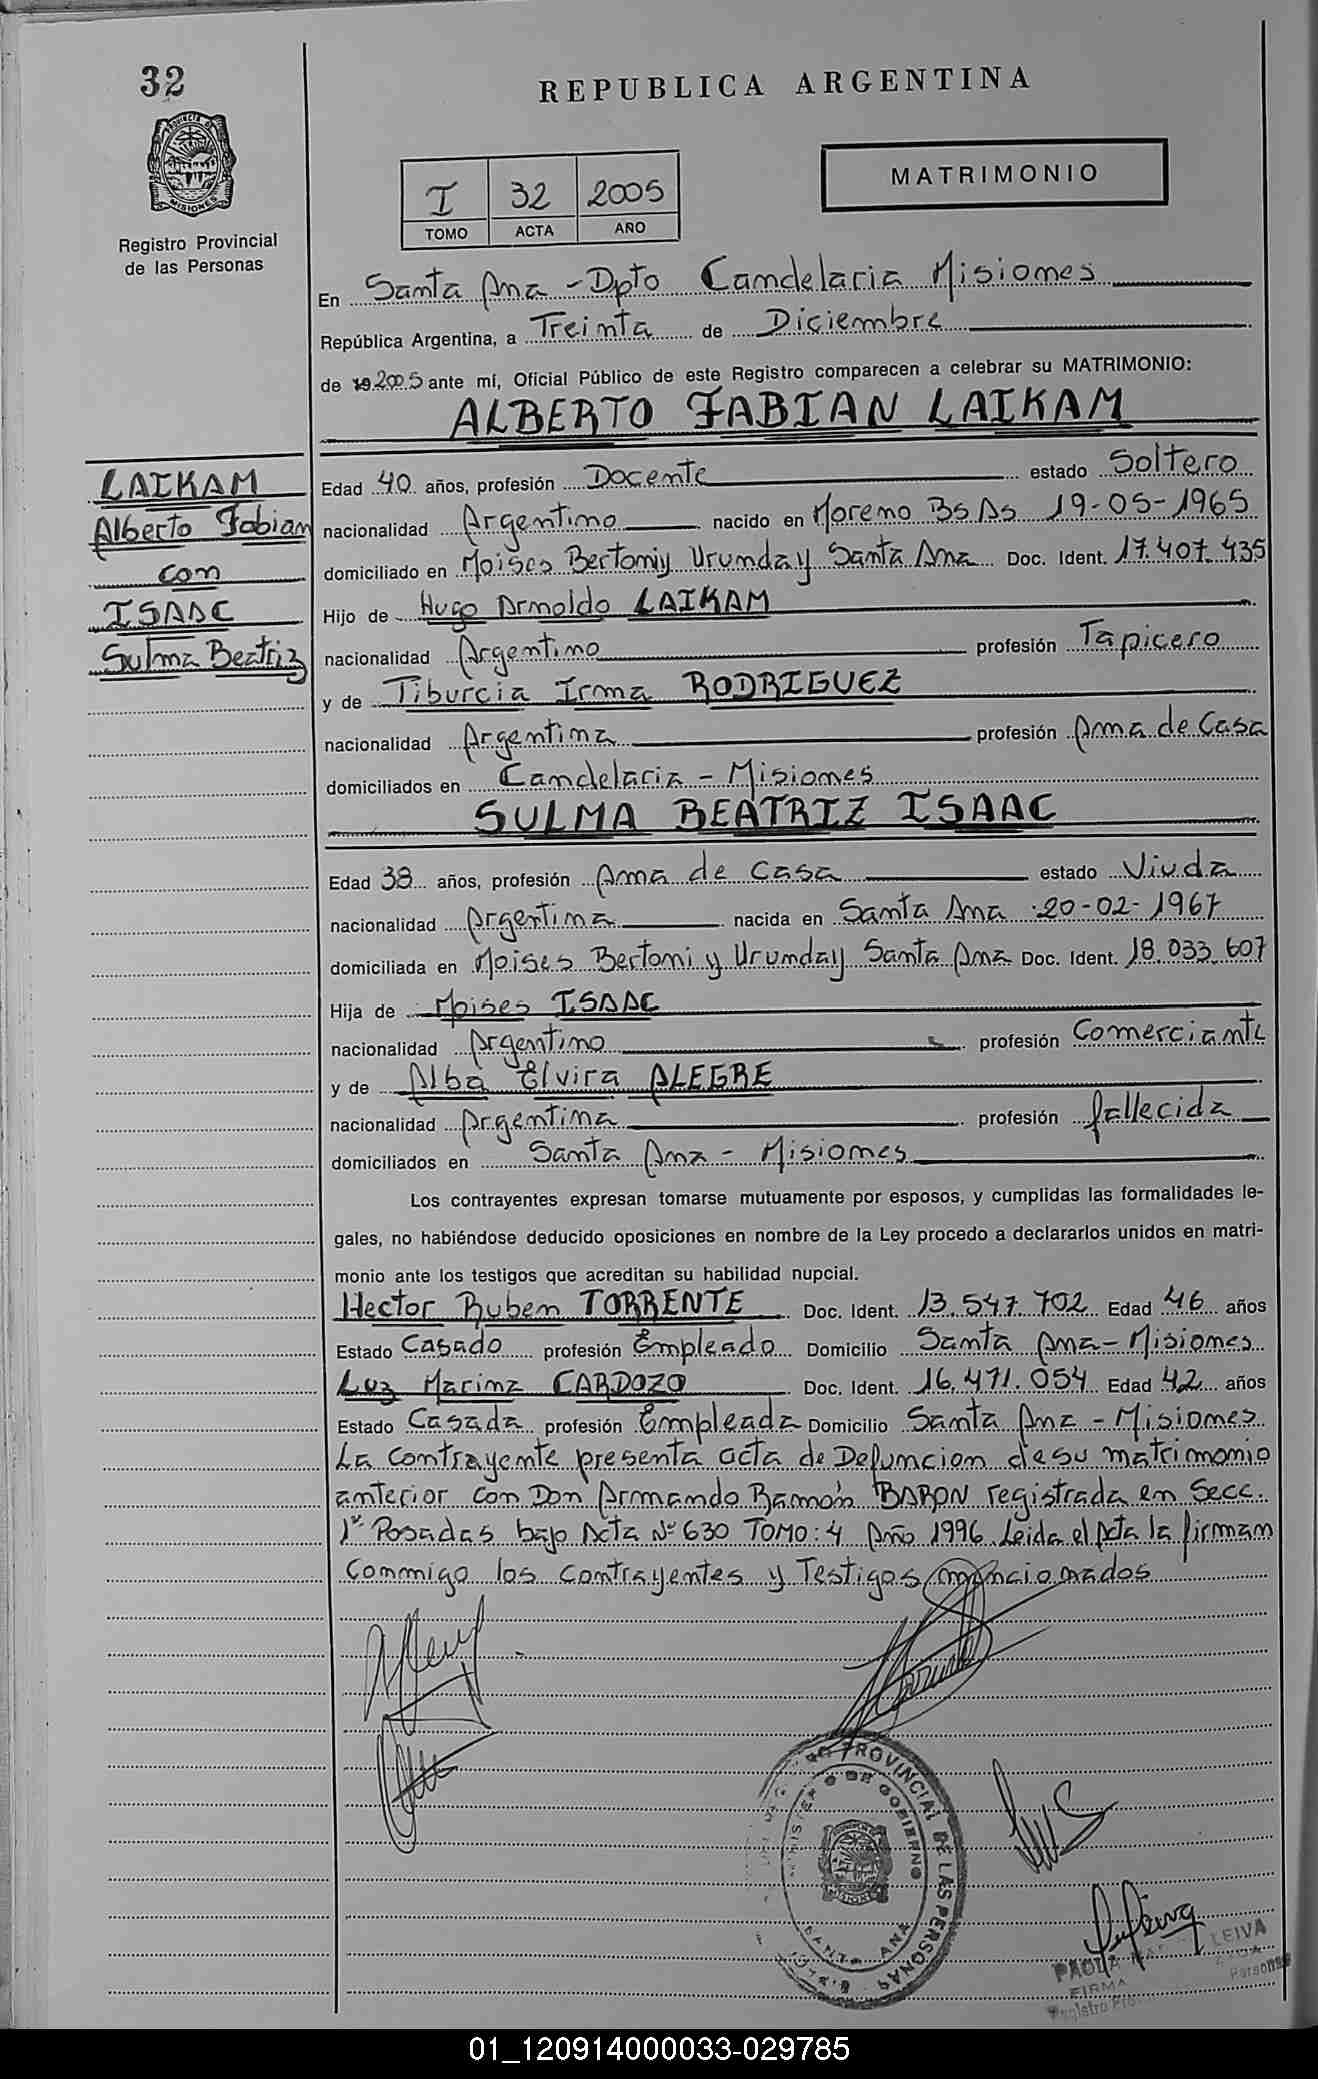 32
REPUBLICA ARGENTINA
PROVINCIA DE
MISIONES
Registro Provincial
de las Personas
MATRIMONIO
I 32 2005
TOMO ACTA AÑO
En Santa Ana - Dpto Candelaria Misiones
República Argentina, a Treinta de Diciembre
de 2005 ante mí, Oficial Público de este Registro comparecen a celebrar su MATRIMONIO:
ALBERTO FABIAN LAIKAM
LAIKAM
Alberto Fabian
con
ISAAC
Sulma Beatriz
Edad 40 años, profesión Docente estado Soltero
nacionalidad Argentino nacido en Moreno Bs As 19-05-1965
domiciliado en Moises Bertomiy Urunday Santa Ana Doc. Ident. 17.407.435
Hijo de Hugo Arnoldo LAIKAM
nacionalidad Argentino profesión Tapicero
y de Tiburcia Irma RODRIGUEZ
nacionalidad Argentina profesión Ama de Casa
domiciliados en Candelaria - Misiones
SULMA BEATRIZ ISAAC
Edad 38 años, profesión Ama de Casa estado Viuda
nacionalidad Argentina nacida en Santa Ana 20-02-1967
domiciliada en Moises Bertomi y Urunday Santa Ana Doc. Ident. 18.033.607
Hija de Moises ISAAC
nacionalidad Argentino profesión Comerciante
y de Alba Elvira ALEGRE
nacionalidad Argentina profesión fallecida
domiciliados en Santa Ana - Misiones
Los contrayentes expresan tomarse mutuamente por esposos, y cumplidas las formalidades le-
gales, no habiéndose deducido oposiciones en nombre de la Ley procedo a declararlos unidos en matri-
monio ante los testigos que acreditan su habilidad nupcial.
Hector Ruben TORRENTE Doc. Ident. 13.547.702 Edad 46 años
Estado Casado profesión Empleado Domicilio Santa Ana - Misiones
Luz Marina CARDOZO Doc. Ident. 16.471.054 Edad 42 años
Estado Casada profesión Empleada Domicilio Santa Ana - Misiones
La Contrayente presenta acta de Defuncion de su matrimonio
anterior con Don Armando Ramón BARON registrada en Secc.
1ª Posadas bajo Acta Nº 630 TOMO: 4 Año 1996. Leida el Acta la firman
Conmigo los Contrayentes y Testigos mencionados
PROVINCIAL DE LAS PERSONAS
MINISTERIO DE GOBIERNO
MISIONES
SANTA ANA
PAOLA LEIVA
FIRMA
Registro
01_120914000033-029785